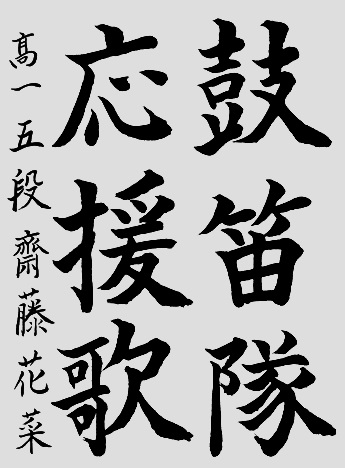 鼓笛隊
応援歌
高一五段齋藤花菜